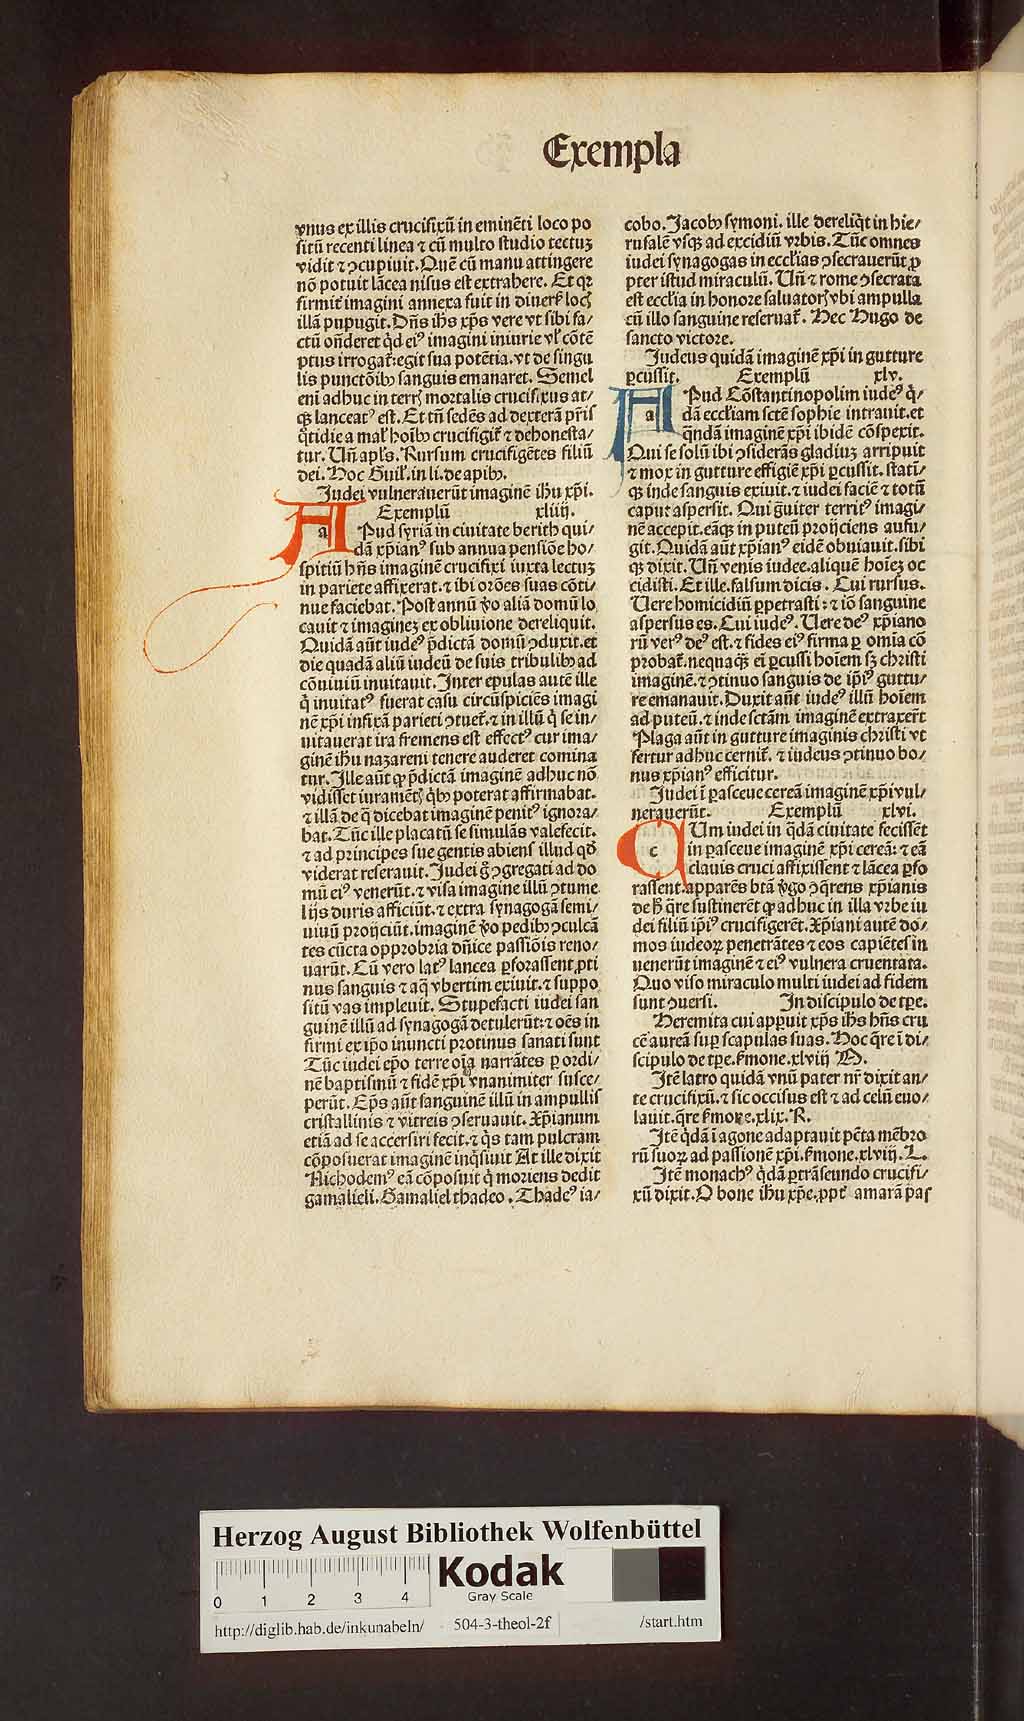 Exempla
vnus ex illis crucifixũ in eminẽti loco po
sitũ recenti linea ⁊ cũ multo studio tectuꝫ
vidit ⁊ ↄcupiuit. Quẽ cũ manu attingere
nõ potuit lãcea nisus est extrahere. Et qꝛ
firmit̃ imagini annexa fuit in diuers̃ locꝭ
illã pupugit. Dñs ihs xp̃s vere vt sibi fa/
ctũ oñderet qď eiꝰ imagini iniurie vl̓ cõtẽ
ptus irrogat̃: egit sua potẽtia. vt de singu
lis punctõibꝰ sanguis emanaret. Semel
eni adhuc in terrꝭ mortalis crucifixus at/
qꝫ lanceatꝰ est. Et tñ sedẽs ad dexterã pr̃is
q̃tidie a mal̓ hoĩbꝰ crucifigit̃ ⁊ dehonesta/
tur. Uñ apl̓s. Rursum crucifigẽtes filiũ
dei. Hoc Guil̓. in li. de apibꝰ.
Judei vulnerauerũt imaginẽ ihu xp̃i.
Exemplũ xliiij.
a Pud syriã in ciuitate berith qui/
dã xp̃ianꝰ sub annua pensiõe ho/
spitiũ hñs imaginẽ crucifixi iuxta lectuꝫ
in pariete affixerat. ⁊ ibi orões suas cõti/
nue faciebat. Post annũ ṽo aliã domũ lo
cauit ⁊ imagineꝫ ex obliuione dereliquit.
Quidã aũt iudeꝰ p̃dictã domũ ↄduxit. et
die quadã aliũ iudeũ de suis tribulibꝰ ad
cõuiuiũ inuitauit. Inter epulas autẽ ille
q̇ inuitatꝰ fuerat casu circũspiciẽs imagi
nẽ xp̃i infixã parieti ↄtuet̃. ⁊ in illũ q̇ se in/
uitauerat ira fremens est effectꝰ cur ima/
ginẽ ihu nazareni tenere auderet comina
tur. Ille aũt qꝫ p̃dictã imaginẽ adhuc nõ
vidisset iuramẽtꝭ qͥbꝰ poterat affirmabat.
⁊ illã de q̃ dicebat imaginẽ penitꝰ ignora/
bat. Tũc ille placatũ se simulãs valefecit.
⁊ ad principes sue gentis abiens illud qď
viderat reserauit. Judei g̊ ↄgregati ad do
mũ eiꝰ venerũt. ⁊ visa imagine illũ ↄtume
lijs duris afficiũt. ⁊ extra synagogã semi/
uiuũ proijciũt. imaginẽ ṽo pedibꝰ ↄculcã
tes cũcta opprobria dñice passiõis reno/
uarũt. Cũ vero latꝰ lancea ꝑforassent ꝓti
nus sanguis ⁊ aq̃ vbertim exiuit. ⁊ suppo
situ vas impleuit. Stupefacti iudei san
guinẽ illũ ad synagogã detulerũt: ⁊ oẽs in
firmi ex ip̃o inuncti protinus sanati sunt
Tũc iudei ep̃o terre oĩa narrãtes ꝑ ordi/
nẽ baptismũ ⁊ fidẽ xp̃i vnanimiter susce/
perũt. Ep̃s aũt sanguinẽ illũ in ampullis
cristallinis ⁊ vitreis ↄseruauit. Xp̃ianum
etiã ad se accersiri fecit. ⁊ q̃s tam pulcram
cõposuerat imaginẽ inq̇siuit At ille dixit
Nichodemꝰ eã cõposuit q̇ moriens dedit
gamalieli. Gamaliel thadeo. Thadeꝰ ia/
cobo. Jacobꝰ symoni. ille dereliq̇t in hie/
rusalẽ vsqꝫ ad excidiũ vrbis. Tũc omnes
iudei synagogas in eccl̓ias ↄsecrauerũt ꝓ
pter istud miraculũ. Uñ ⁊ rome ↄsecrata
est eccl̓ia in honore saluatorꝭ vbi ampulla
cũ illo sanguine reseruat̃. Hec Hugo de
sancto victore.
Judeus quidã imaginẽ xp̃i in gutture
ꝑcussit. Exemplũ xlv.
a Pud Cõstantinopolim iudeꝰ q̇/
dã eccl̓iam sctẽ sophie intrauit. et
q̃ndã imaginẽ xp̃i ibidẽ cõspexit.
Qui se solũ ibi ↄsiderãs gladiuꝫ arripuit
⁊ mox in gutture effigiẽ xp̃i ꝑcussit. stati/
qꝫ inde sanguis exiuit. ⁊ iudei faciẽ ⁊ totũ
caput aspersit. Qui g̃uiter territꝰ imagi/
nẽ accepit. eãqꝫ in puteũ proijciens aufu/
git. Quidã aũt xp̃ianꝰ eidẽ obuiauit. sibi
qꝫ dixit. Uñ venis iudee. aliquẽ hoĩeꝫ oc
cidisti. Et ille. falsum dicis. Cui rursus.
Uere homicidiũ ꝑpetrasti: ⁊ iõ sanguine
aspersus es. Cui iudeꝰ. Uere deꝰ xp̃iano
rũ verꝰ deꝰ est. ⁊ fides eiꝰ firma ꝑ omia cõ
probat̃. nequaqꝫ ei ꝑcussi hoĩem sꝫ christi
imaginẽ. ⁊ ↄtinuo sanguis de ip̃iꝰ guttu/
re emanauit. Duxit aũt iudeꝰ illũ hoĩem
ad puteũ. ⁊ inde sctãm imaginẽ extraxer̃t
Plaga aũt in gutture imaginis christi vt
fertur adhuc cernit̃. ⁊ iudeus ↄtinuo bo/
nus xp̃ianꝰ efficitur.
Judei ĩ ꝑasceue cereã imaginẽ xp̃i vul/
nerauerũt. Exemplũ xlvi.
c Um iudei in q̃dã ciuitate fecissẽt
in ꝑasceue imaginẽ xp̃i cereã: ⁊ eã
clauis cruci affixissent ⁊ lãcea ꝑfo
rassent. apparẽs btã ṽgo ↄq̃rens xp̃ianis
de h̊ q̃re sustinerẽt qꝫ adhuc in illa vrbe iu
dei filiũ ip̃iꝰ crucifigerẽt. Xp̃iani autẽ do/
mos iudeoꝝ penetrãtes ⁊ eos capiẽtes in
uenerũt imaginẽ ⁊ eiꝰ vulnera cruentata.
Quo viso miraculo multi iudei ad fidem
sunt ↄuersi. In discipulo de tp̃e.
Heremita cui apꝑuit xp̃s ihs hñs cru
cẽ aureã suꝑ scapulas suas. Hoc q̃re ĩ di/
scipulo de tp̃e. s̃mone. xlviij A.
Itẽ latro quidã vnũ pater nr̃ dixit an/
te crucifixũ. ⁊ sic occisus est ⁊ ad celũ euo/
lauit. q̃re s̃mone. xlix. R.
Itẽ q̇dã ĩ agone adaptauit pẽta mẽbro
rũ suoꝝ ad passionẽ xp̃i. s̃mone. xlviij. L.
Itẽ monachꝰ q̇dã ꝑtrãseundo crucifi/
xũ dixit. O bone ihu xp̃e. ꝓpt̃ amarã pas
Herzog August Bibliothek Wolfenbüttel
0 1 2 3 4
Kodak
Gray Scale
http://diglib.hab.de/inkunabeln/ 504-3-theol-2f /start.htm